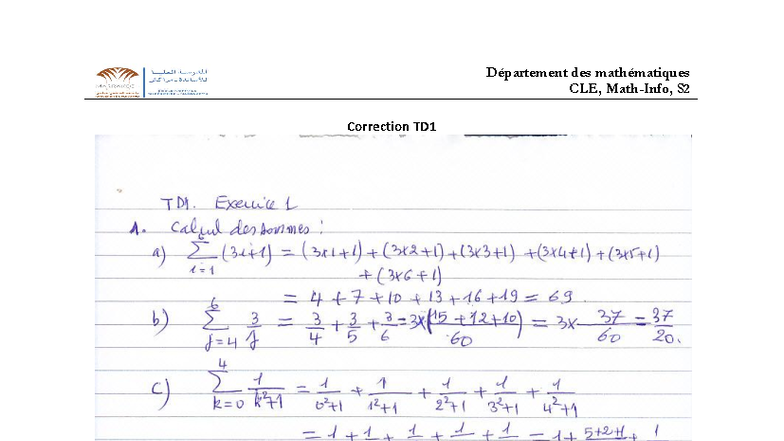 Département des mathématiques
CLE, Math-Info, S2
Correction TD1
TD1. Exercice 1
1. Calcul des sommes :
a) ∑_{i=1}^{6} (3i+1) = (3×1+1) + (3×2+1) + (3×3+1) + (3×4+1) + (3×5+1)
+ (3×6+1)
= 4 + 7 + 10 + 13 + 16 + 19 = 69
b) ∑_{j=4}^{6} 3/j = 3/4 + 3/5 + 3/6 = 3×(15+12+10)/60 = 3× 37/60 = 37/20.
c) ∑_{k=0}^{4} 1/(k²+1) = 1/(0²+1) + 1/(1²+1) + 1/(2²+1) + 1/(3²+1) + 1/(4²+1)
= 1 + 1 + 1 + 1 + 1 = 1 + 5+2+1 + 1